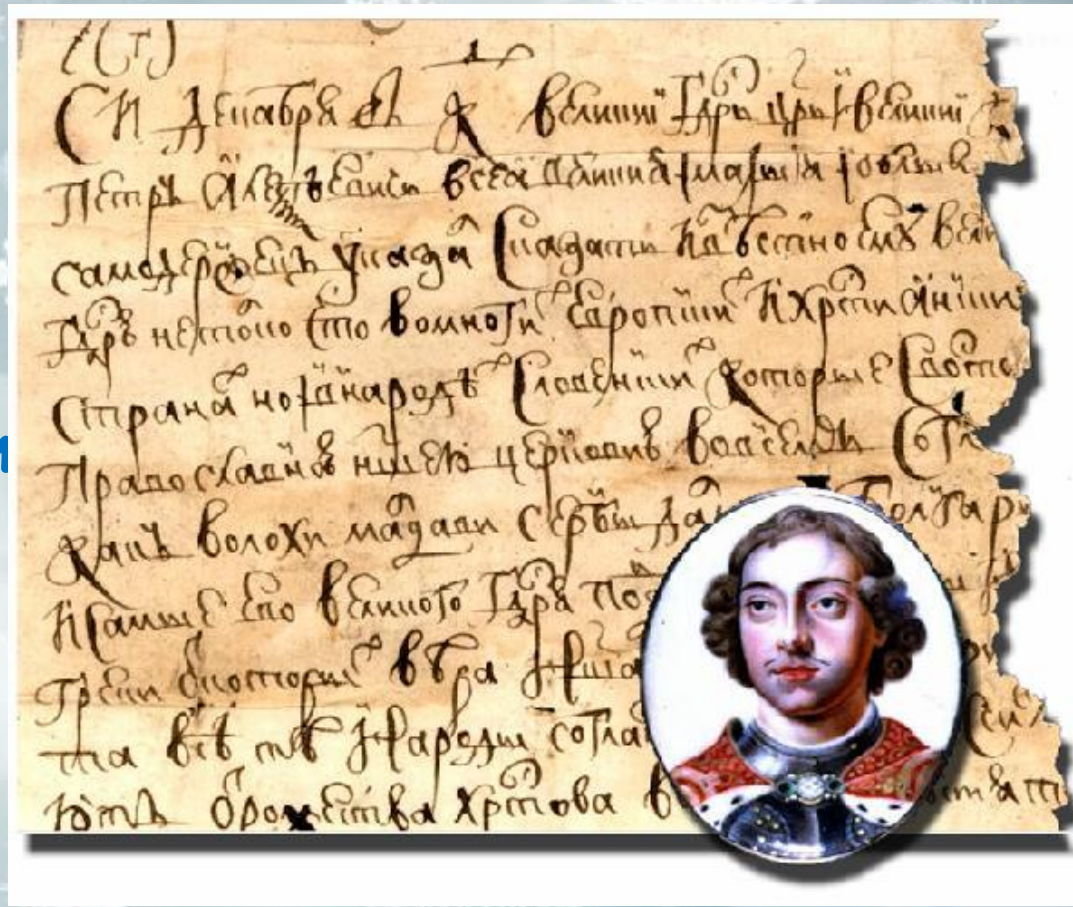 СИ декабря въ К великии Гдрь црь и великии
Петръ Алеѯѣевичь всеа великия и малыя и бѣлыя
самодержецъ указал сказати извѣстно ему вели
Гдрю не толко что во многих европских христианских
странах но и в народѣх словенских которые с восто
православною нашею церковию во всем согл
какъ волохи молдави сербы дал болгары
и самые его великого Гдря под
греки от которых вѣра наша
та всѣ тѣ народы согла
ютъ от рожества Христова в